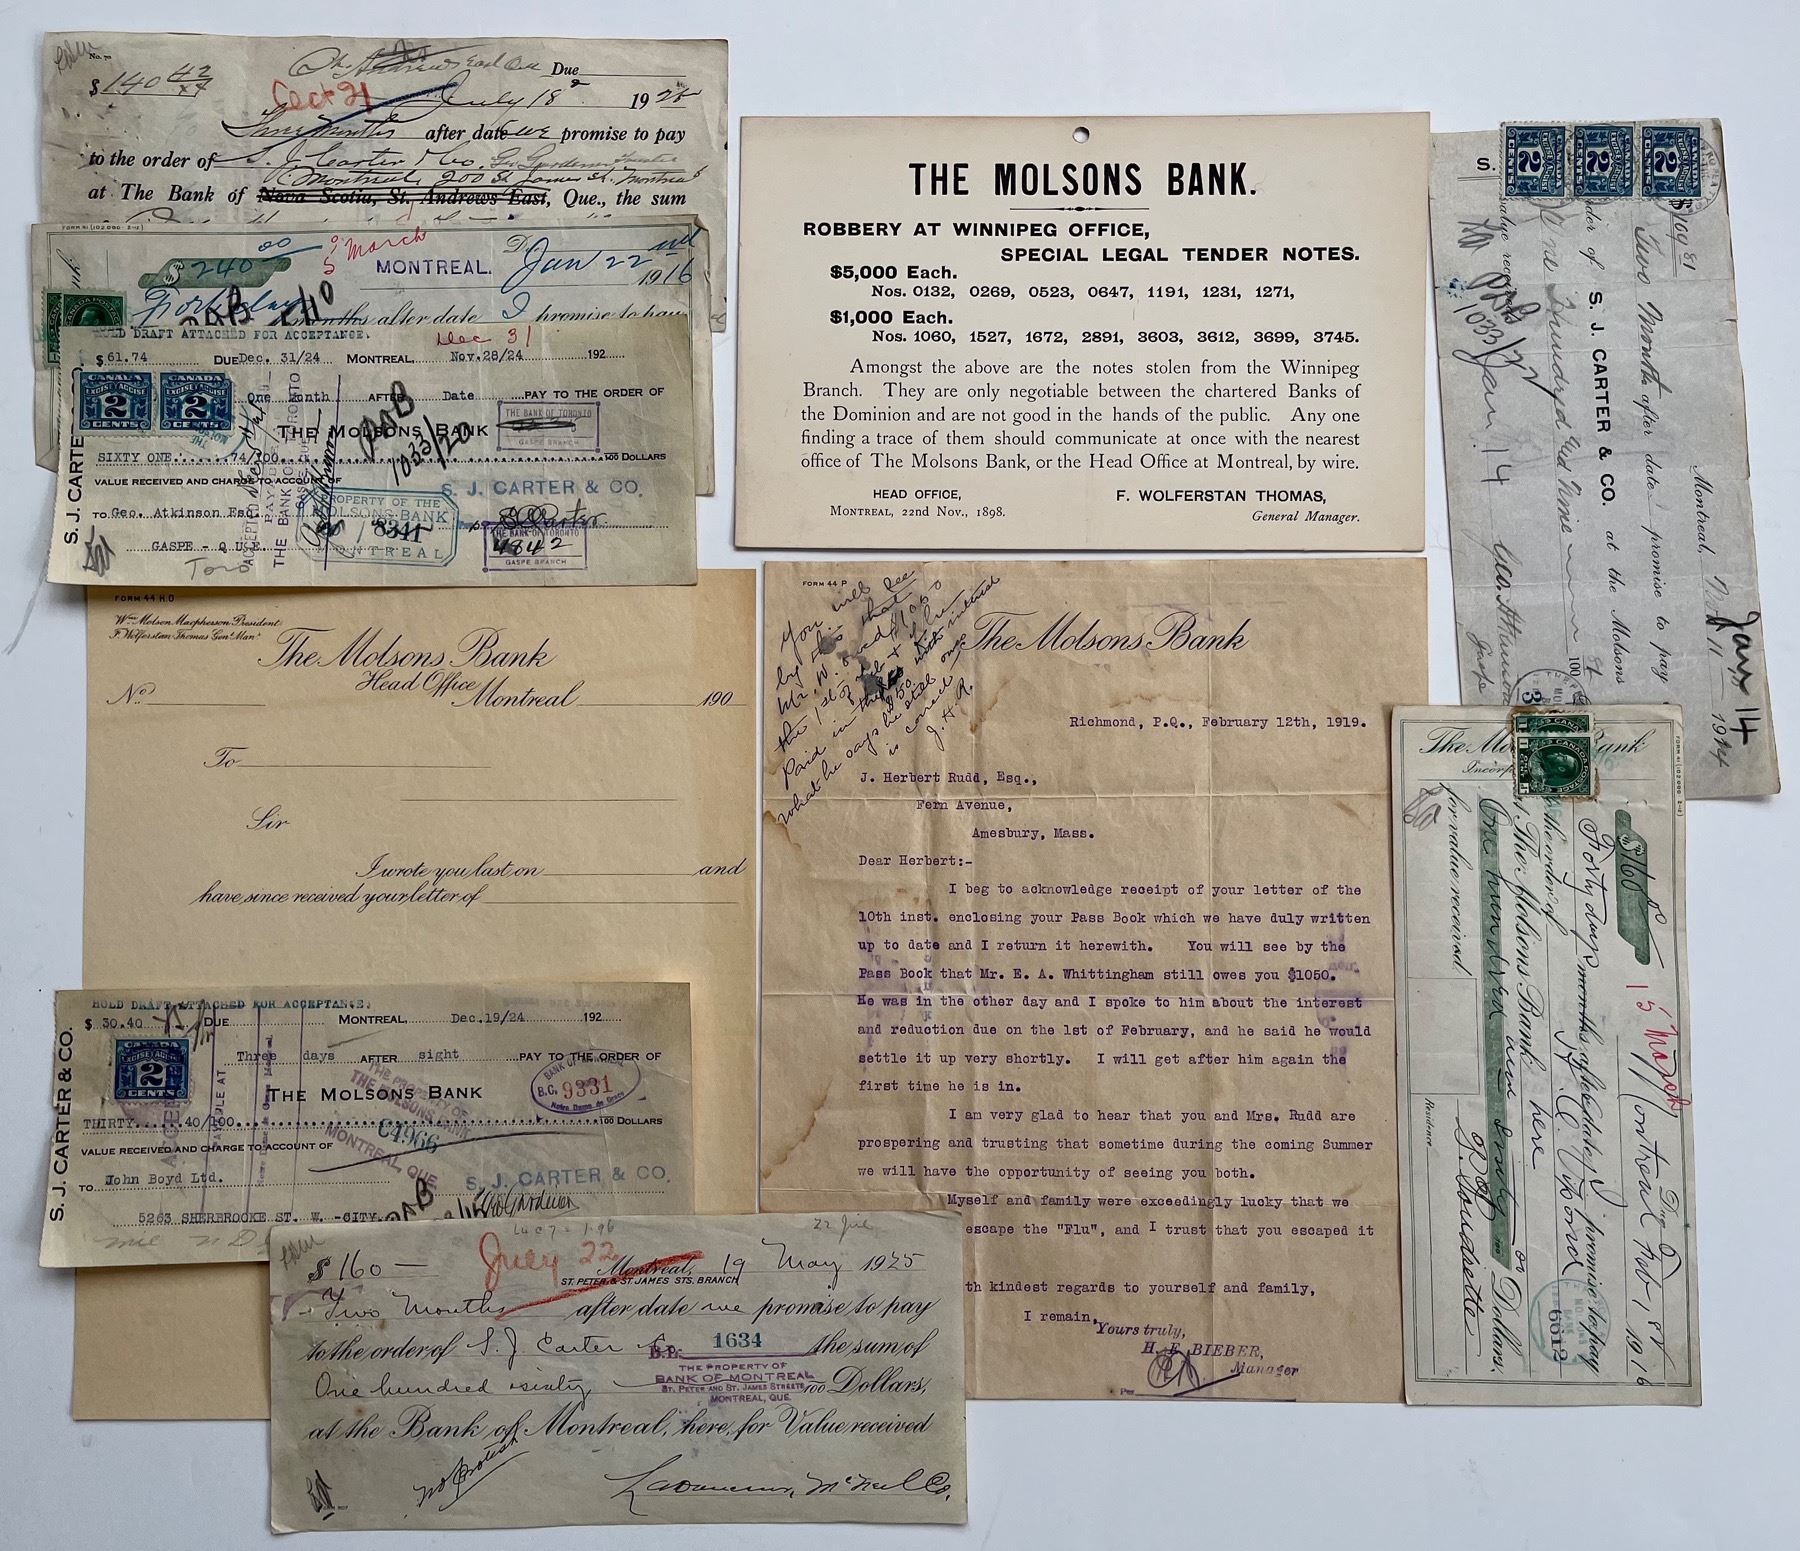 No.
$ 140 42
Due
Oct 21
July 18 1925
Three Months after date we promise to pay
to the order of S. J. Carter & Co.
Montreal, 200 St James St. Montreal
at The Bank of Nova Scotia, St. Andrews East, Que., the sum
FORM 81 (102,000 2-12)
$ 240 00
March
MONTREAL.
Jan 22nd 1916
months after date I promise to pay
HOLD DRAFT ATTACHED FOR ACCEPTANCE.
Dec 31
$ 61.74 DUE Dec. 31/24 MONTREAL, Nov.28/24 192
CANADA
EXCISE TAX ACCISE
2
CENTS
CANADA
EXCISE TAX ACCISE
2
CENTS
One Month AFTER Date PAY TO THE ORDER OF
THE MOLSONS BANK
THE BANK OF TORONTO
GASPE BRANCH
1033/20
SIXTY ONE. 74/100 100 DOLLARS
VALUE RECEIVED AND CHARGE TO ACCOUNT OF
S. J. CARTER & CO.
TO Geo. Atkinson Esq.
GASPE - QUE.
PROPERTY OF THE
MOLSONS BANK
8341
MONTREAL
THE BANK OF TORONTO
4842
GASPE BRANCH
S. J. CARTE
FORM 44 H.O
Wm. Molson Macpherson President
F. Wolferstan Thomas Genl. Manr.
The Molsons Bank
Head Office
No. Montreal 190
To
Sir
I wrote you last on and
have since received your letter of
HOLD DRAFT ATTACHED FOR ACCEPTANCE.
S. J. CARTER & CO.
$ 30.40 DUE MONTREAL, Dec.19/24 192
CANADA
EXCISE TAX ACCISE
2
CENTS
Three days AFTER sight PAY TO THE ORDER OF
THE MOLSONS BANK
B.C. 9331
Notre Dame de Grace
THIRTY 40/100 100 DOLLARS
VALUE RECEIVED AND CHARGE TO ACCOUNT OF
THE PROPERTY OF
THE MOLSONS BANK
C4966
MONTREAL, QUE
S. J. CARTER & CO.
TO John Boyd Ltd.
5263 SHERBROOKE ST. W. -CITY.
$ 160 —
July 22
Montreal, 19 May 1925
ST. PETER & ST. JAMES STS. BRANCH
Two Months after date we promise to pay
to the order of S. J. Carter the sum of
B.D. 1634
THE PROPERTY OF
BANK OF MONTREAL
ST. PETER AND ST. JAMES STREETS
MONTREAL, QUE.
One hundred sixty 100 Dollars,
at the Bank of Montreal, here, for Value received
no protest
THE MOLSONS BANK.
ROBBERY AT WINNIPEG OFFICE,
SPECIAL LEGAL TENDER NOTES.
$5,000 Each.
Nos. 0132, 0269, 0523, 0647, 1191, 1231, 1271,
$1,000 Each.
Nos. 1060, 1527, 1672, 2891, 3603, 3612, 3699, 3745.
Amongst the above are the notes stolen from the Winnipeg
Branch. They are only negotiable between the chartered Banks of
the Dominion and are not good in the hands of the public. Any one
finding a trace of them should communicate at once with the nearest
office of The Molsons Bank, or the Head Office at Montreal, by wire.
HEAD OFFICE,
MONTREAL, 22nd Nov., 1898.
F. WOLFERSTAN THOMAS,
General Manager.
FORM 44 P
The Molsons Bank
You will see
by this that
Mr. W. owed $1050
the 1st of Feb &
paid in
what he says he still owes
is correct
J. H. R.
Richmond, P.Q., February 12th, 1919.
J. Herbert Rudd, Esq.,
Fern Avenue,
Amesbury, Mass.
Dear Herbert:-
I beg to acknowledge receipt of your letter of the
10th inst. enclosing your Pass Book which we have duly written
up to date and I return it herewith. You will see by the
Pass Book that Mr. E. A. Whittingham still owes you $1050.
He was in the other day and I spoke to him about the interest
and reduction due on the 1st of February, and he said he would
settle it up very shortly. I will get after him again the
first time he is in.
I am very glad to hear that you and Mrs. Rudd are
prospering and trusting that sometime during the coming Summer
we will have the opportunity of seeing you both.
Myself and family were exceedingly lucky that we
escape the "Flu", and I trust that you escaped it
th kindest regards to yourself and family,
I remain,
Yours truly,
H. E. BIEBER,
Manager
Per
S.
2
2
2
$ 109 81
Montreal, Nov 11 1924
Jan 14
Two Months after date promise to pay
der of S. J. CARTER & CO. at the Molsons
One Hundred and Nine 81 100
value received
1033/22
Jan 14
Geo. Atkinson
Gaspe
FORM 81 (102,000 2-12)
The Mo Bank
Incorp
CANADA POSTAGE
1 CENT 1
$ 160
15 March
Montreal Feb 1st 1916
Due
Forty days months after date, I promise to pay
the order of
or
The Molsons Bank here
One hundred and sixty 100 Dollars.
for value received.
6612
Residence